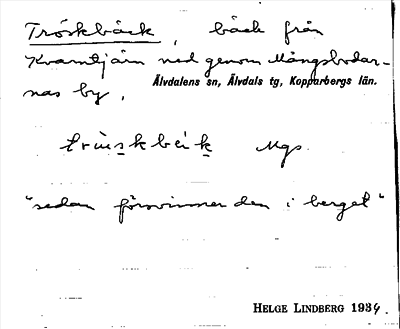 Tröskbäck, bäck från
Kvarntjärn ned genom Mångsbodar-
nas by.
Älvdalens sn, Älvdals tg, Kopparbergs län.
Mgs.
"sedan försvinner den i berget"
HELGE LINDBERG 1934.